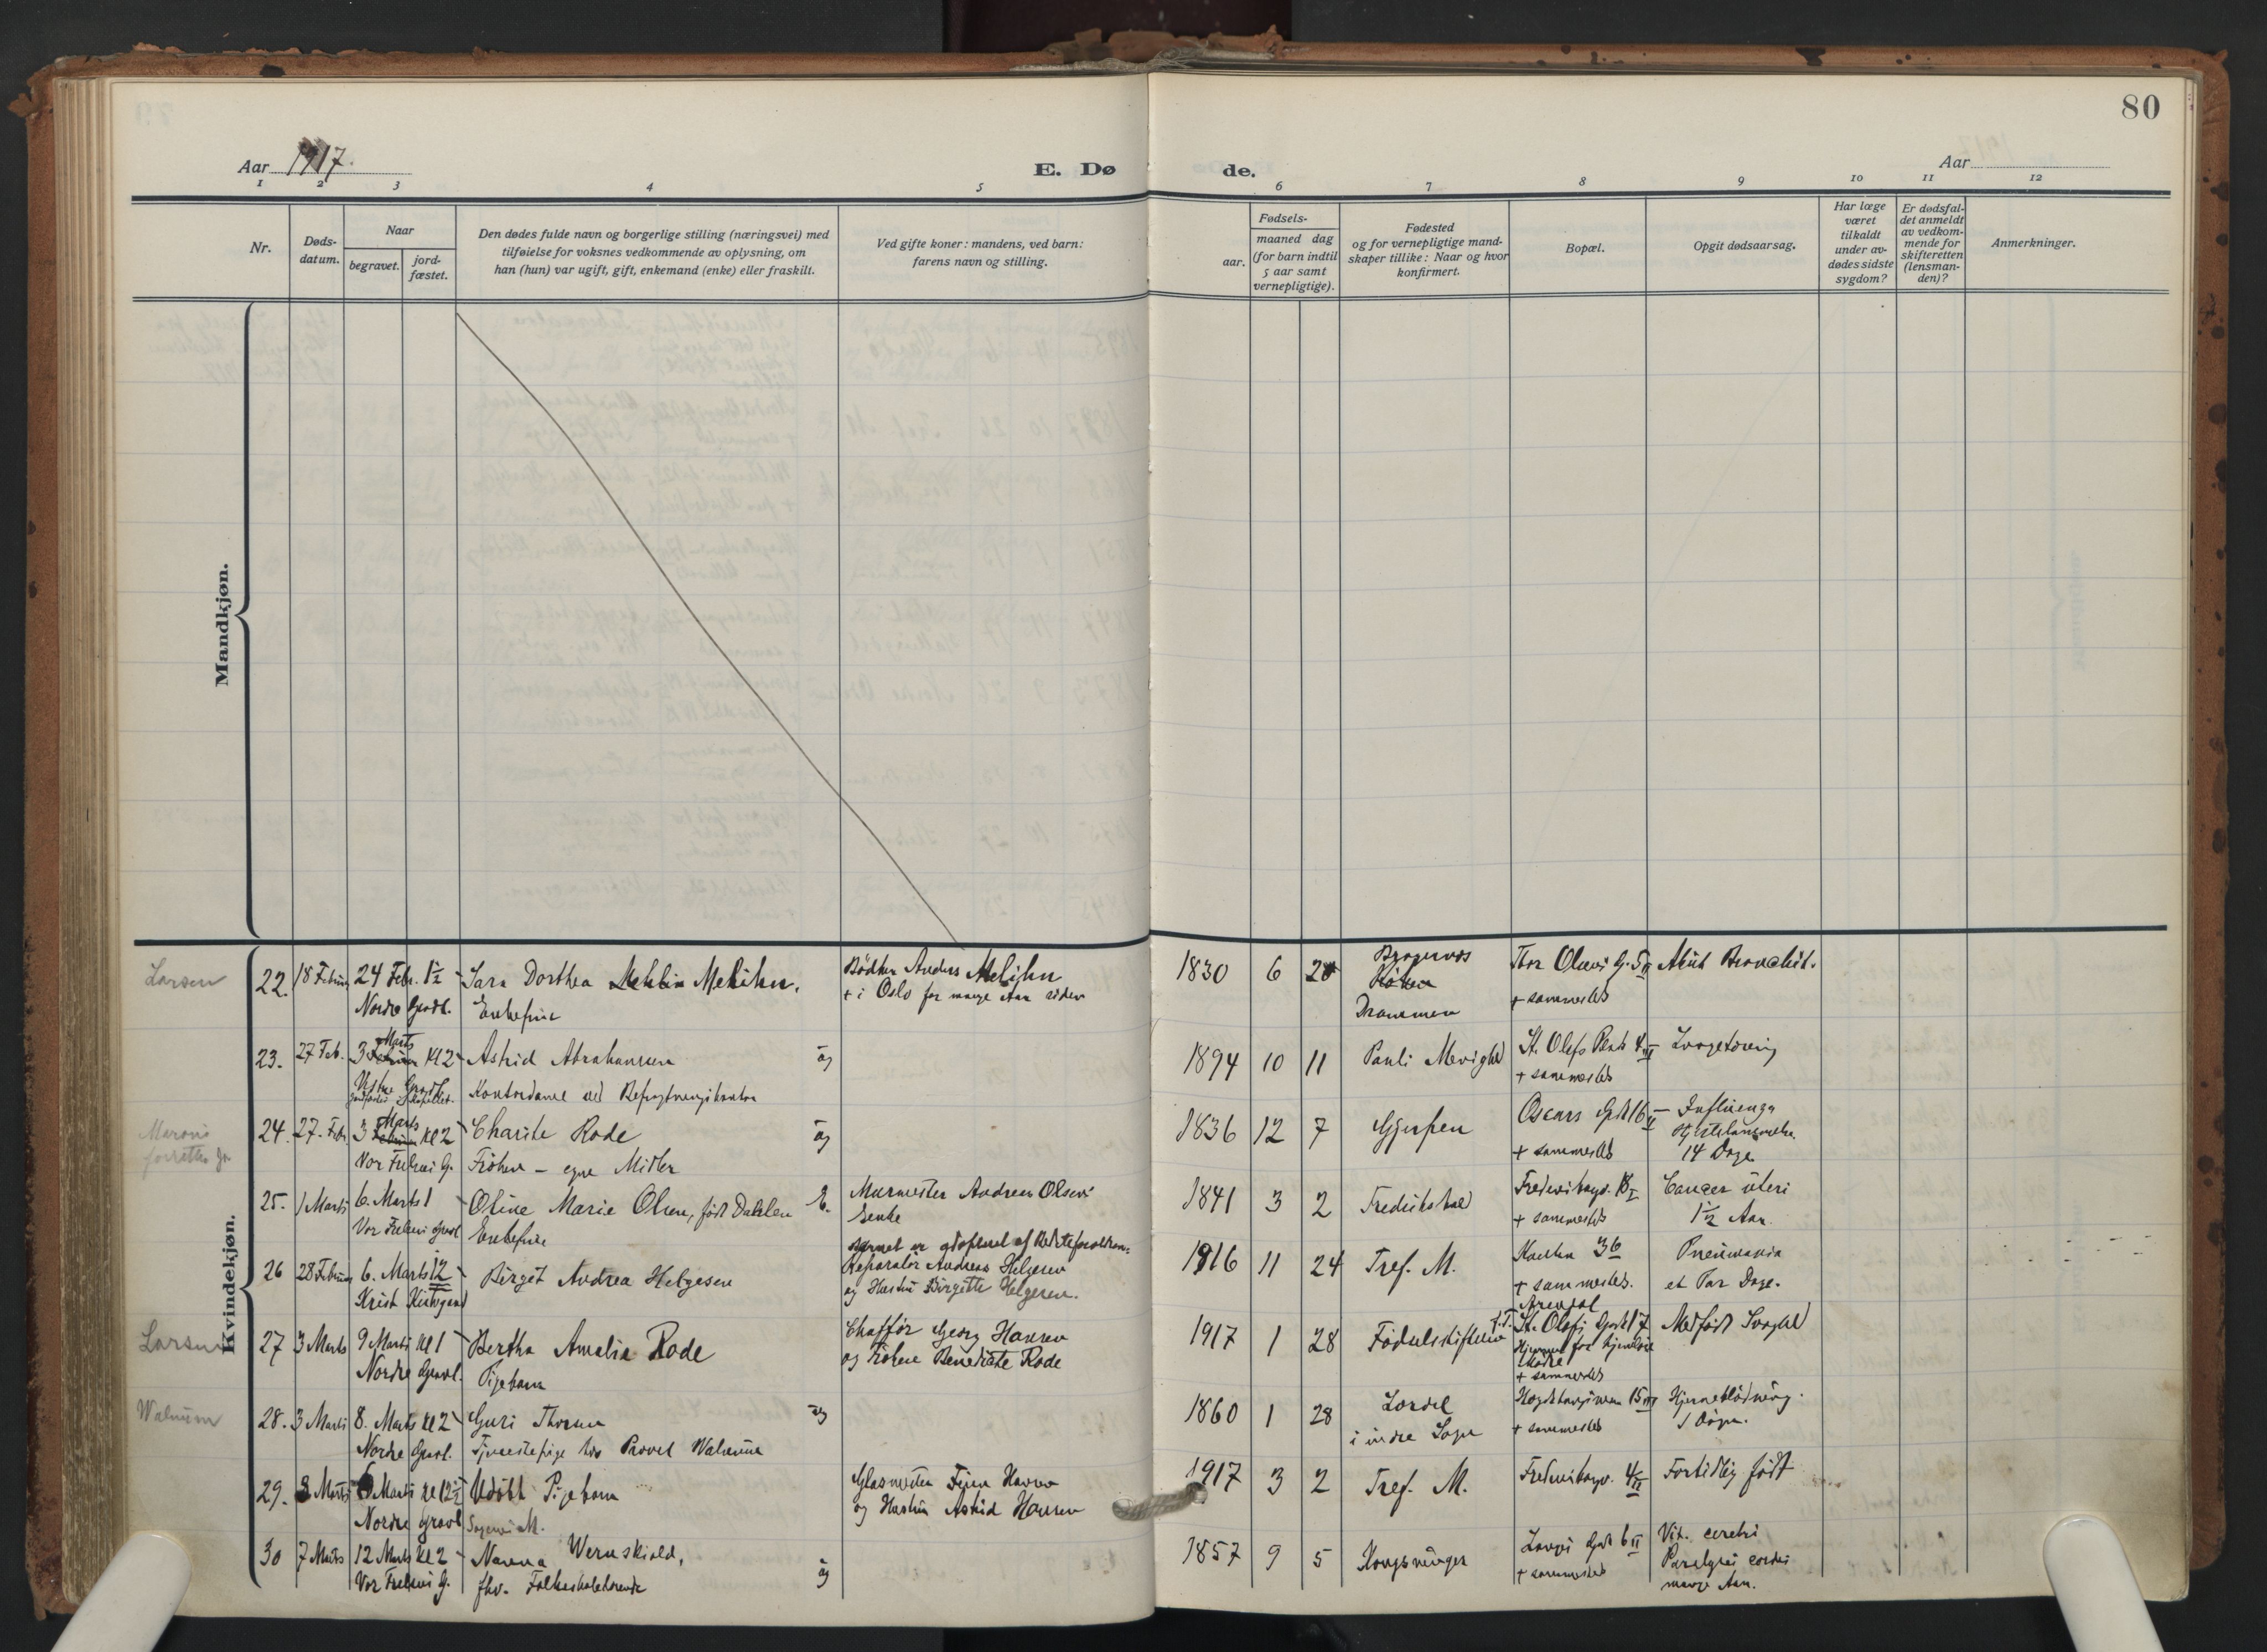 80
Aar 1917.
E. Dø
de.
Aar
1 2 3 4 5 6 7 8 9 10 11 12
Nr.
Døds-
datum.
Naar
begravet.
jord-
fæstet.
Den dødes fulde navn og borgerlige stilling (næringsvei) med
tilføielse for voksnes vedkommende av oplysning, om
han (hun) var ugift, gift, enkemand (enke) eller fraskilt.
Ved gifte koner: mandens, ved barn:
farens navn og stilling.
Fødsels-
aar.
maaned dag
(for barn indtil
5 aar samt
vernepligtige).
Fødested
og for vernepligtige mand-
skaper tillike: Naar og hvor
konfirmert.
Bopæl.
Opgit dødsaarsag.
Har læge
været
tilkaldt
under av-
dødes sidste
sygdom?
Er dødsfal-
det anmeldt
av vedkom-
mende for
skifteretten
(lensman-
den)?
Anmerkninger.
Mandkjøn.
Kvindekjøn.
Larsen
22. 18 Februar 24 Febr. 1½ Sara Dorthea Mehlin Melihn. Bødker Anders Melihn 1830 6 Bragernes Thor Olsens G. 5 II Akut Bronchit.
Nordre Gravl. Enkefrue + i Oslo for mange Aar siden Drammen + sammesteds
23. 27 Feb. 3 Marts Kl 2 Astrid Abrahamsen ug 1894 10 11 Pauli Menighed St. Olafs Plads 4 III Lungetæring
Vestre Gravl. Kapellet. Kontordame ved Befragtningskontor + sammesteds
24. 27. Feb. 3 Marts Kl 2 Charite Rode ug 1836 12 7 Gjerpen Oscars Gd 16 II Influenza
Vor Frelsers G. Frøken – egne Midler + sammesteds 14 Dage
25. 1 Marts 6. Marts 1 Oline Marie Olsen, født Dahlen E. Murmester Andreas Olsens 1841 3 2 Fredrikshald Fredensborgv. 18 I Cancer uteri
Vor Frelsers Gravl Enkefrue Enke + sammesteds 1½ Aar.
Barnet er opfostret af Bedsteforældrene
26 28 Februar 6. Marts 12 Birgit Andrea Helgesen Reparatør Andreas Helgesen 1916 11 24 Tref. M. 36 Pneumonia
Krist Kirkegaard og Hustru Birgitte Helgesen. + sammesteds. et Par Dage.
Larsen
Arendal
27 3 Marts 9 Marts Kl 1 Bertha Amalie Rode Chaffør Georg Hansen 1917 1 28 Fødselsstiftelsen St. Olafs Gade 17 Medfødt Svaghed
Nordre Gravl. Pigebarn og Frøken Benedicte Rode Hjemmet for hjemløse
Mødre
+ sammesteds
Walnum
28. 3 Marts 8. Marts Kl 2 Guri Thorsen ug 1860 1 28 Lærdal 15 III Hjerneblødning.
Nordre Gravl. Tjenestepige hos Provst Walnum i indre Sogn + sammesteds 1 Døgn.
29. 2 Marts 6 Marts Kl 12½ Udøbt Pigebarn Glasmester Hansen 1917 3 2 Tref. M. Fredensborgv. 4 II Fortidlig født
Nordre Gravl Sagenes M. og Hustru Astrid Hansen
30 7 Marts 12 Marts Kl 2 Nanna Wernskiold, ug 1857 9 5 Kongsvinger Langes Gade 6 II Vit. cerebri
Vor Frelsers G. fhv. Folkeskolelærerinde + sammesteds Paralysis cordis
mange Aar.